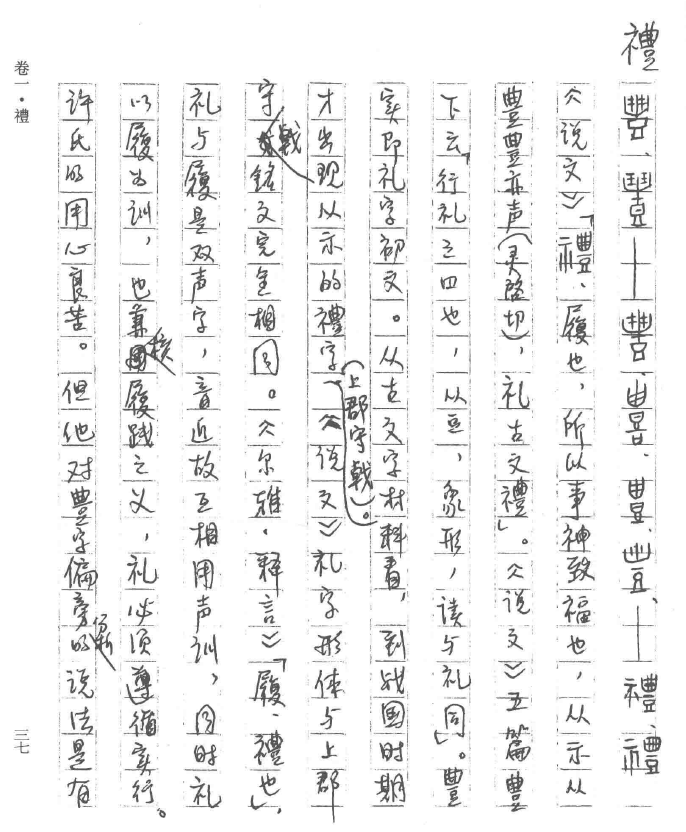 禮
豊、豊——豊、豊、豊、豊、——禮、禮
《说文》「禮、履也，所以事神致福也，从示从
豊豊亦声（灵啓切），礼古文禮」。《说文》五篇豊
下云「行礼之口也，从豆，象形，读与礼同」。豊
实即礼字初文。从古文字材料看，到战国时期
才出现从示的禮字（上郡守戟）。《说文》礼字形体与上郡
守戟铭文完全相同。《尔雅·释言》「履、禮也」，
礼与履是双声字，音近故互相用声训，同时礼
以履为训，也兼该履践之义，礼必须遵循实行。
许氏的用心良苦。但他对豊字偏旁分析的说法是有
卷一·禮
三七